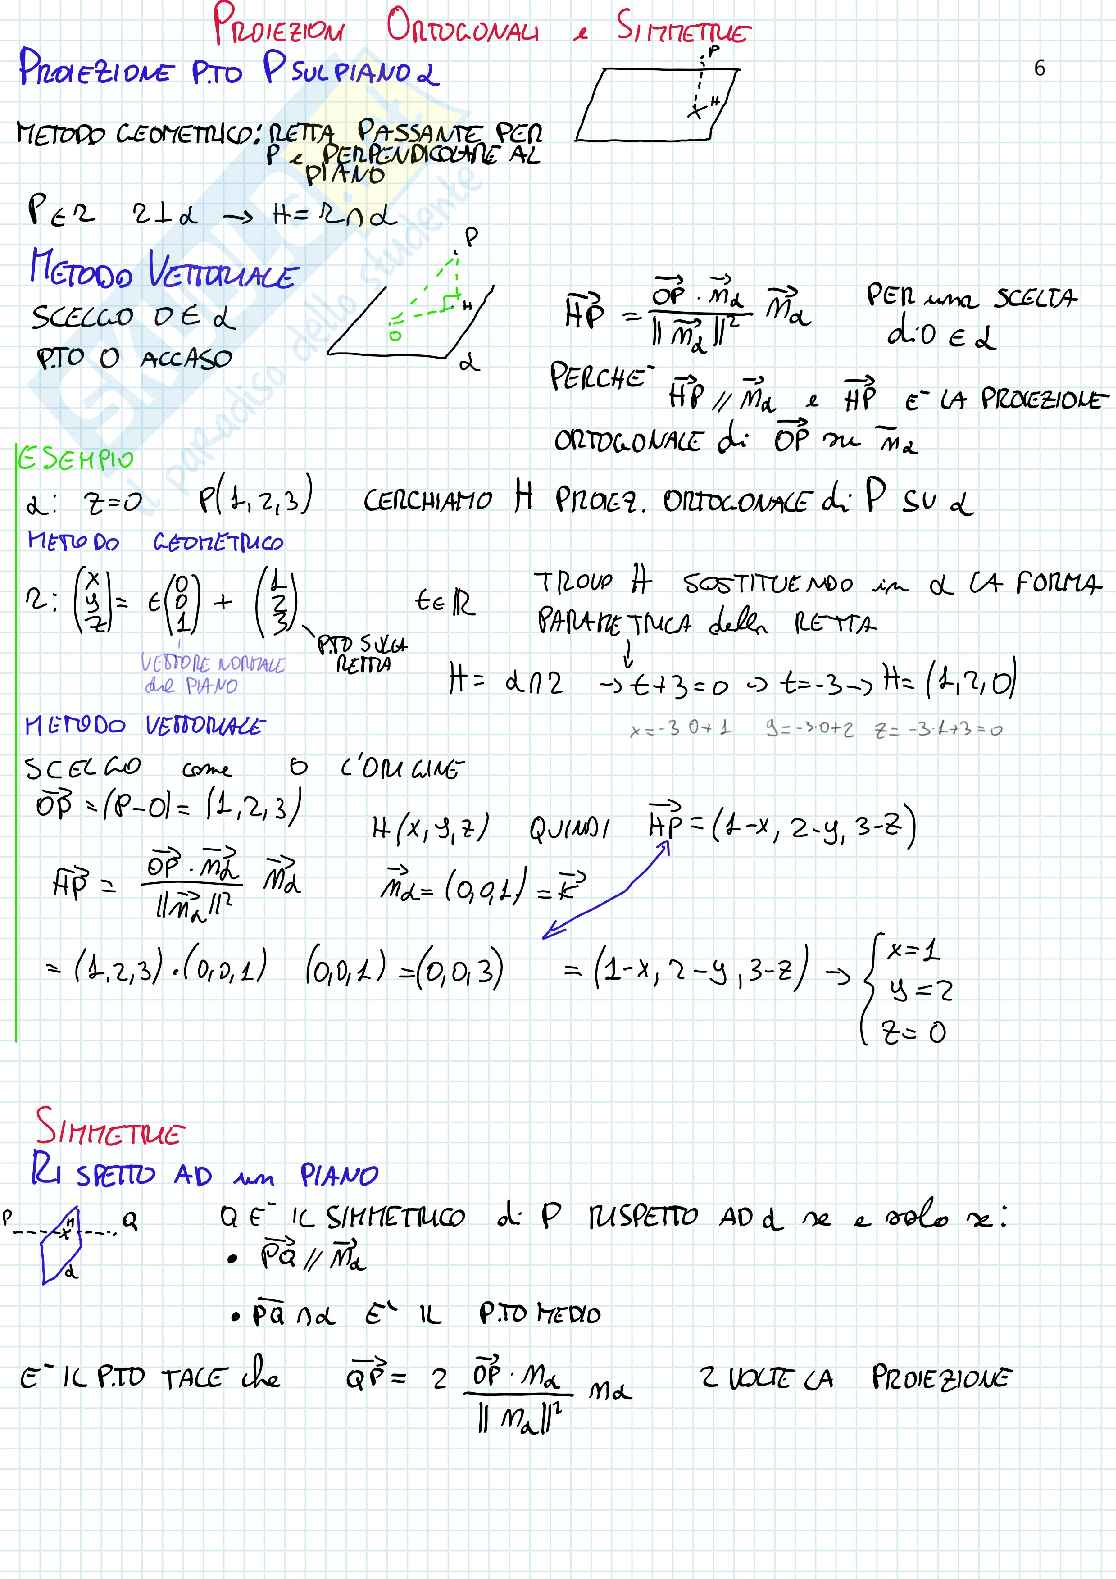 PROIEZIONI ORTOGONALI e SIMMETRIE
6
PROIEZIONE P.TO P SUL PIANO α
P
H
METODO GEOMETRICO: RETTA PASSANTE PER
P e PERPENDICOLARE AL
PIANO
P ∈ r r ⊥ α → H = r ∩ α
METODO VETTORIALE
SCELGO O ∈ α
P.TO O ACCASO
P
H
O
α
HP = (OP · nα / ||nα||²) nα PER una SCELTA
di O ∈ α
PERCHE' HP // nα e HP E' LA PROIEZIONE
ORTOGONALE di OP su nα
ESEMPIO
α: z=0 P(1,2,3) CERCHIAMO H PROIEZ. ORTOGONALE di P SU α
METODO GEOMETRICO
r: (x y z) = t(0 0 1) + (1 2 3) t∈ℝ
VETTORE NORMALE
del PIANO
P.TO SULLA
RETTA
TROVO H SOSTITUENDO in α LA FORMA
PARAMETRICA della RETTA
H = α ∩ r → t+3=0 → t=-3 → H=(1,2,0)
x=-3·0+1 y=-3·0+2 z=-3·1+3=0
METODO VETTORIALE
SCELGO come O L'ORIGINE
OP = (P-O) = (1,2,3)
H(x,y,z) QUINDI HP = (1-x, 2-y, 3-z)
HP = (OP · nα / ||nα||²) nα nα = (0,0,1) = k
= (1,2,3)·(0,0,1) (0,0,1) = (0,0,3) = (1-x, 2-y, 3-z) → { x=1
y=2
z=0
SIMMETRIE
RISPETTO AD un PIANO
P H Q
α
Q E' IL SIMMETRICO di P RISPETTO AD α se e solo se:
• PQ // nα
• PQ ∩ α E' IL P.TO MEDIO
E' IL P.TO TALE che QP = 2 (OP · nα / ||nα||²) nα 2 VOLTE LA PROIEZIONE
skuola.net
il paradiso dello studente